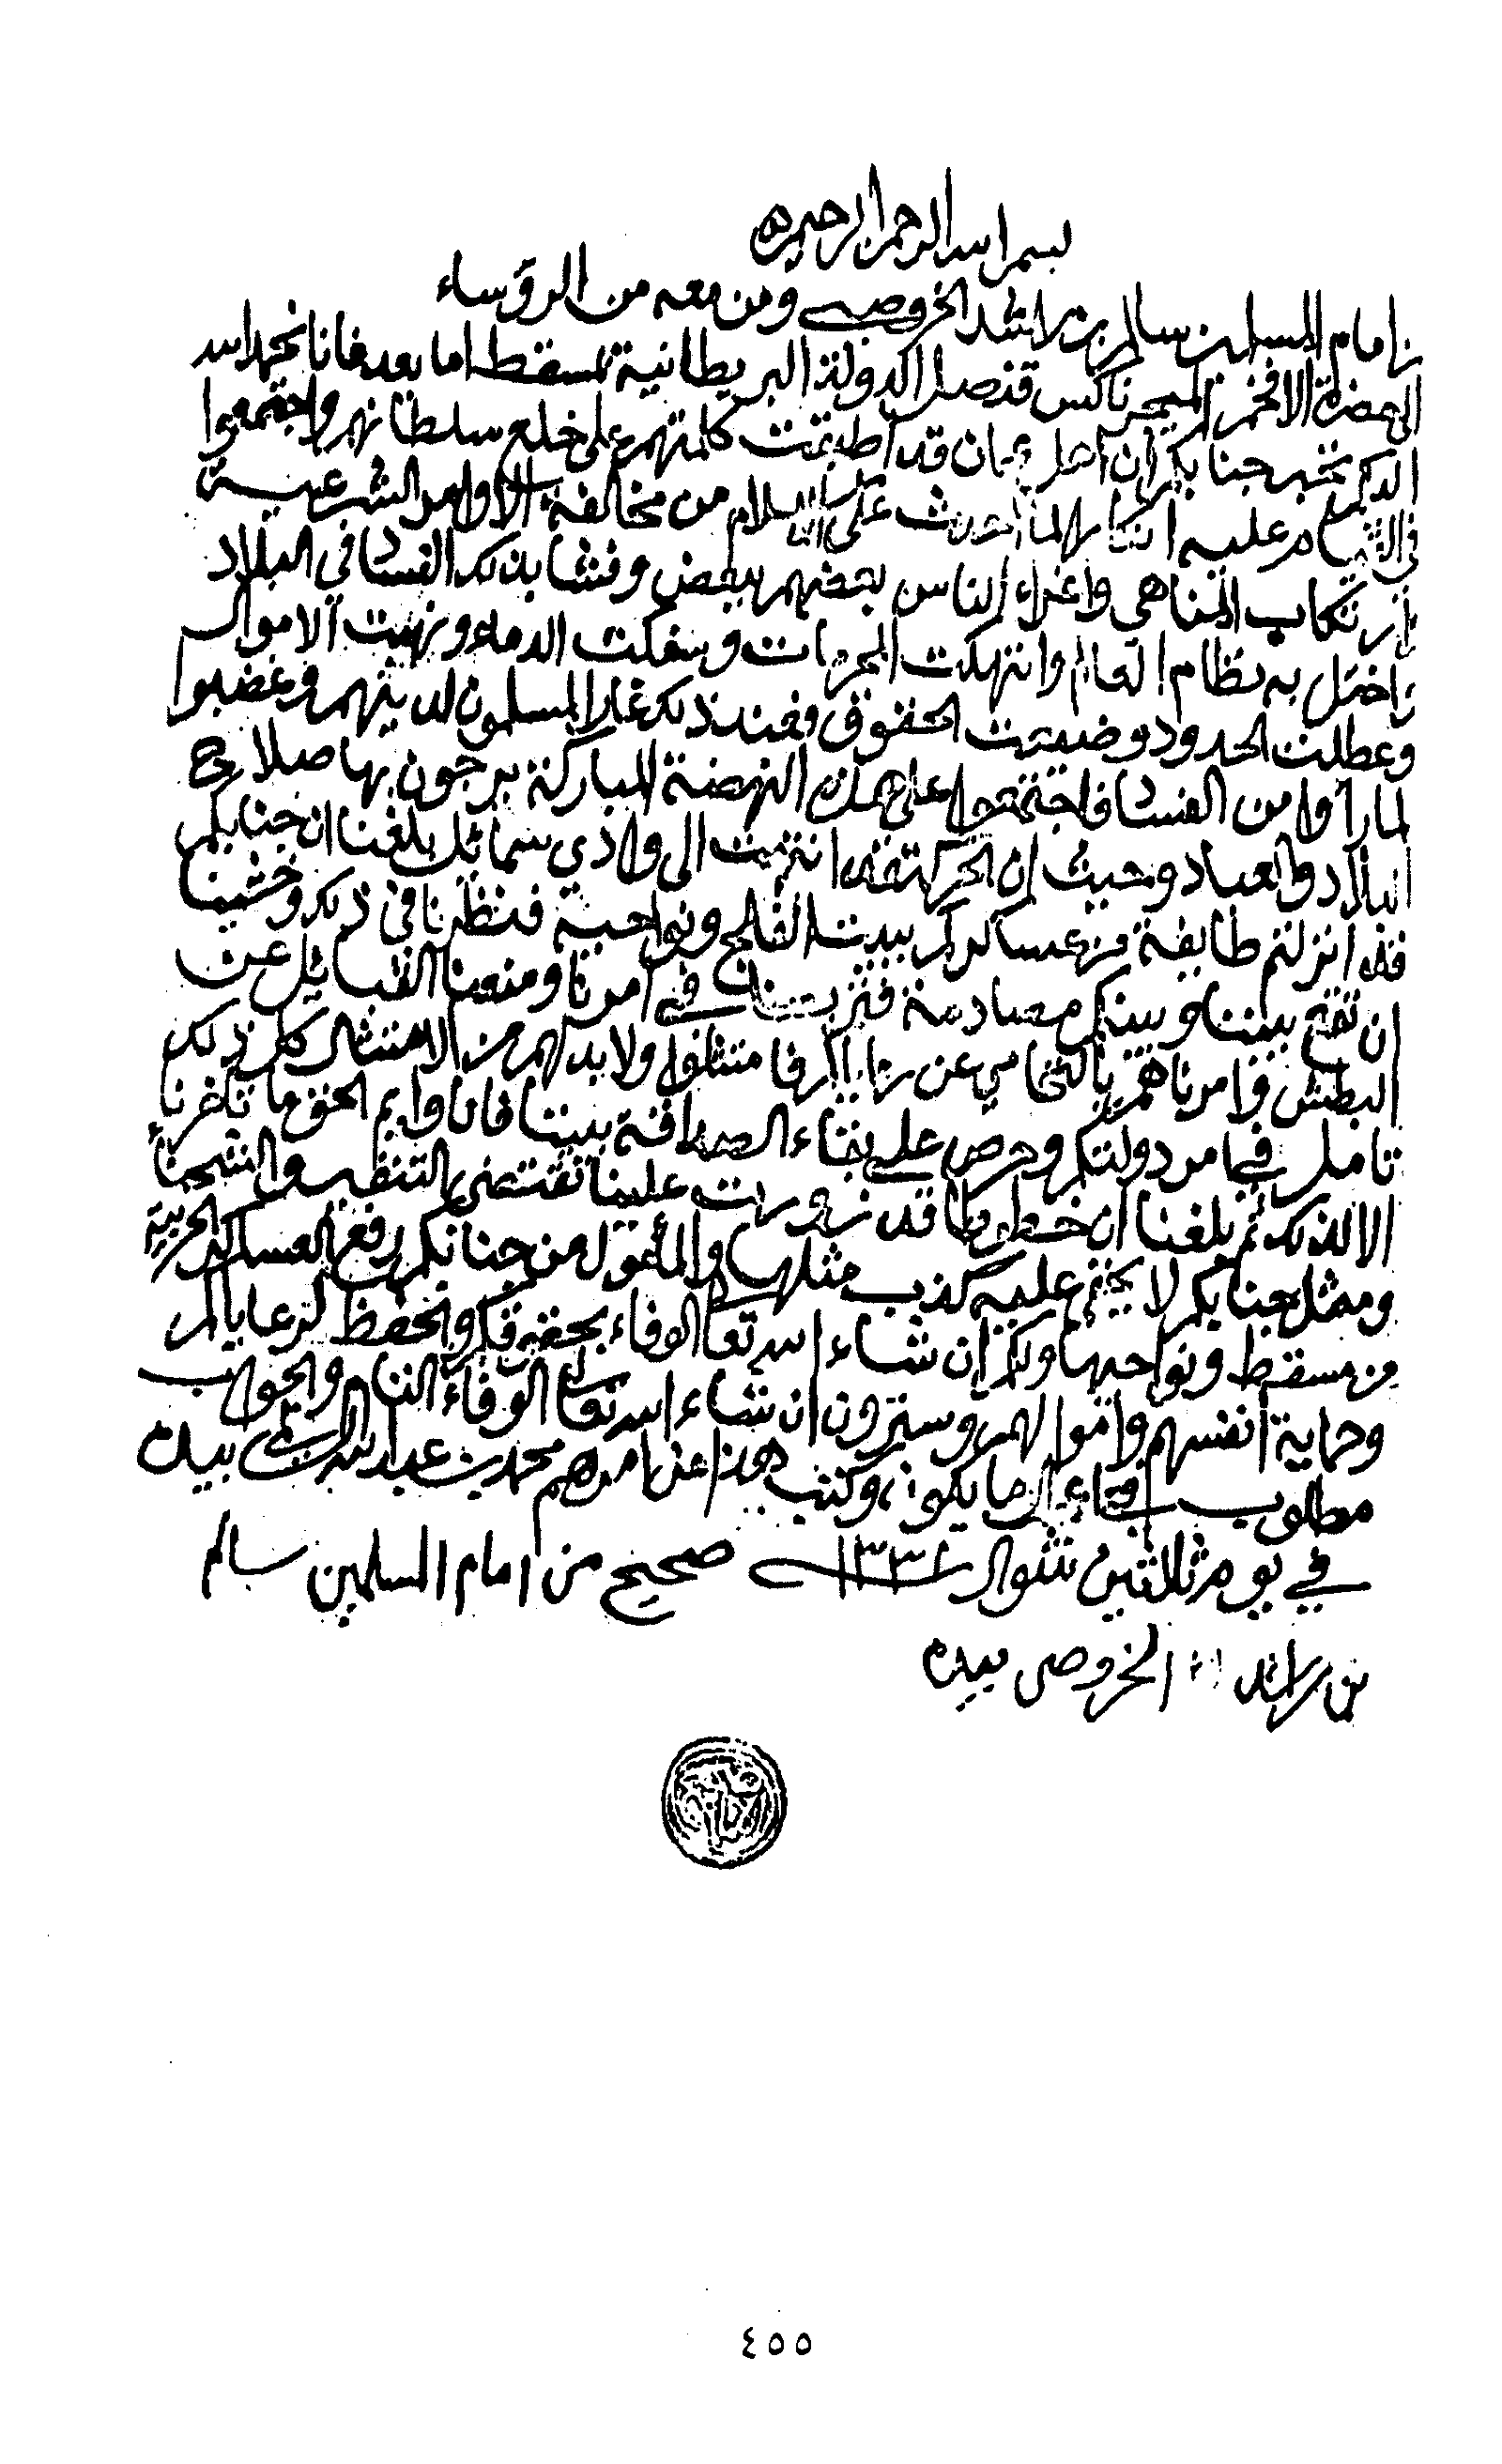 بسم الله الرحمن الرحيم
من امام المسلمين سالم بن راشد الخروصي ومن معه من الرؤساء
الى حضرة الافخم الميجر ناكس قنصل الدولة البريطانية بمسقط اما بعد فانا نحمد الله
اليكم نخبر جنابكم ان اهل عمان قد اطبقت كلمتهم على خلع سلطانهم واجتمعوا
في القيام عليه انكارا لما احدث على الاسلام من مخالفة الاوامر الشرعية
وارتكاب المناهي واغراء الناس بعضهم ببعض وفشا بذلك الفساد في البلاد
واختل به نظام العالم وانتهكت المحرمات وسفكت الدماء ونهبت الاموال
وعطلت الحدود وضيعت الحقوق فعند ذلك غار المسلمون لدينهم وغضبوا
لما رأوا من الفساد فاجتمعوا على هذه النهضة المباركة يرجون بها صلاح
البلاد والعباد وحيث ان الحركة قد انتهت الى وادي سمائل بلغنا ان جنابكم
قد انزلتم طايفة من عساكركم ببيت الفلج ونواحيه فنظرنا في ذلك وخشينا
ان تقع بيننا وبينكم مصادمة فتربصنا في امرنا ومنعنا القبائل عن
البطش وامرناهم بالتحامي عن رعاياكم فامتثلوا ولا بد لهم من الامتثال كل ذلك
تامل فيما من دولتكم وحرص على بقاء الصداقة بيننا فانا وايم الحق ما تاخرنا
الا لذلك ثم بلغنا ان خطوطا قد زورت علينا تقتضي التنفير والتشحنا
ومثل جنابكم لا يخفى عليه كذب مثلها والمأمول من جنابكم رفع العساكر الحربية
من مسقط ونواحيها ولكم ان شاء الله تعالى الوفاء بحقوقكم والحفظ لرعاياكم
وحماية انفسهم واموالهم وسترون ان شاء الله تعالى الوفاء التام والجواب
مطلوب بما يكون وكتب هذا عن امرهم محمد بن عبدالله السالمي بيده
في يوم ثلاثين شوال سنة ١٣٣١ صحيح من امام المسلمين سالم
بن راشد الخروصي بيده
٤٥٥